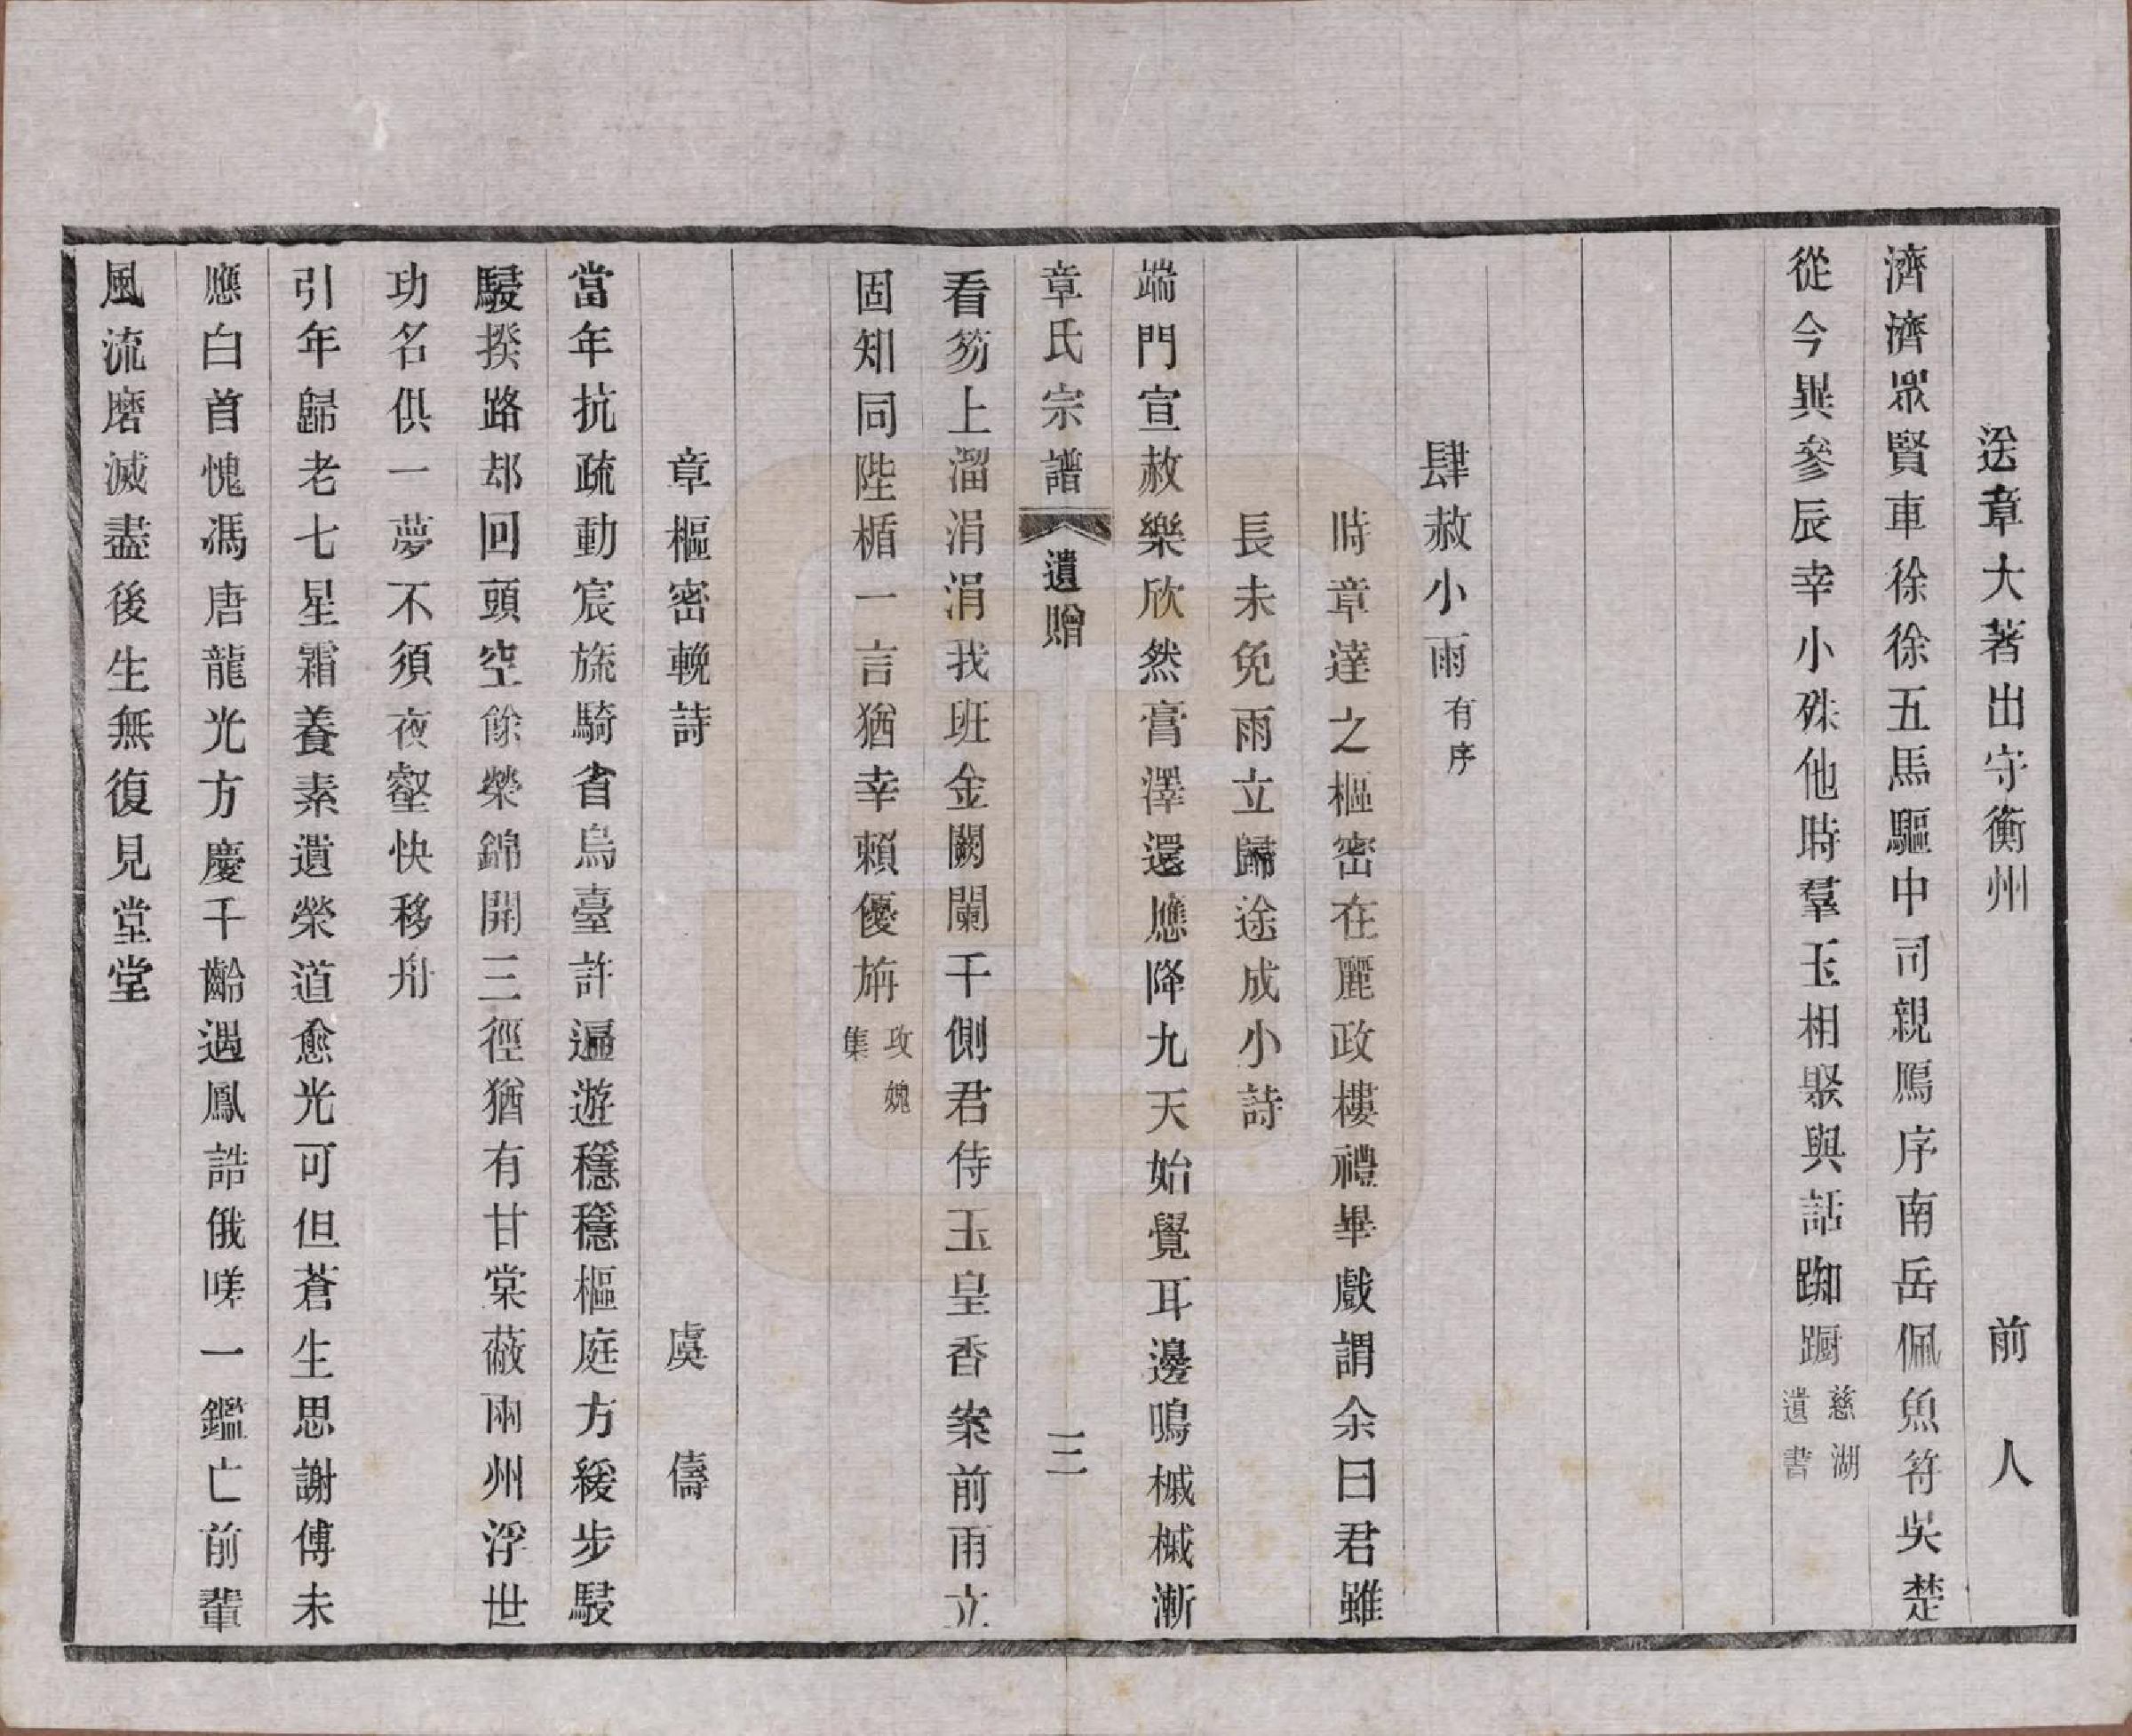 送章大著出守衡州　前人
濟濟眾賢車徐徐五馬驅中司親鴈序南岳佩魚符吳楚
從今異參辰幸小殊他時羣玉相聚與話踟躕慈湖遺書
肆赦小雨有序
時章達之樞密在麗政樓禮畢戲謂余曰君雖
長未免雨立歸途成小詩
端門宣赦樂欣然膏澤還應降九天始覺耳邊鳴槭槭漸
章氏宗譜　遺贈　三
看笏上溜涓涓我班金闕闌干側君侍玉皇香案前雨立
固知同陛楯一言猶幸賴優旃攻媿集
章樞密輓詩　虞儔
當年抗疏動宸旒騎省烏臺許遍遊穩穩樞庭方緩步駸
駸揆路却回頭空餘榮錦開三徑猶有甘棠蔽兩州浮世
功名俱一夢不須夜壑快移舟
引年歸老七星霜養素遺榮道愈光可但蒼生思謝傅未
應白首愧馮唐龍光方慶千齡遇鳳誥俄嗟一鑑亡前輩
風流磨滅盡後生無復見堂堂